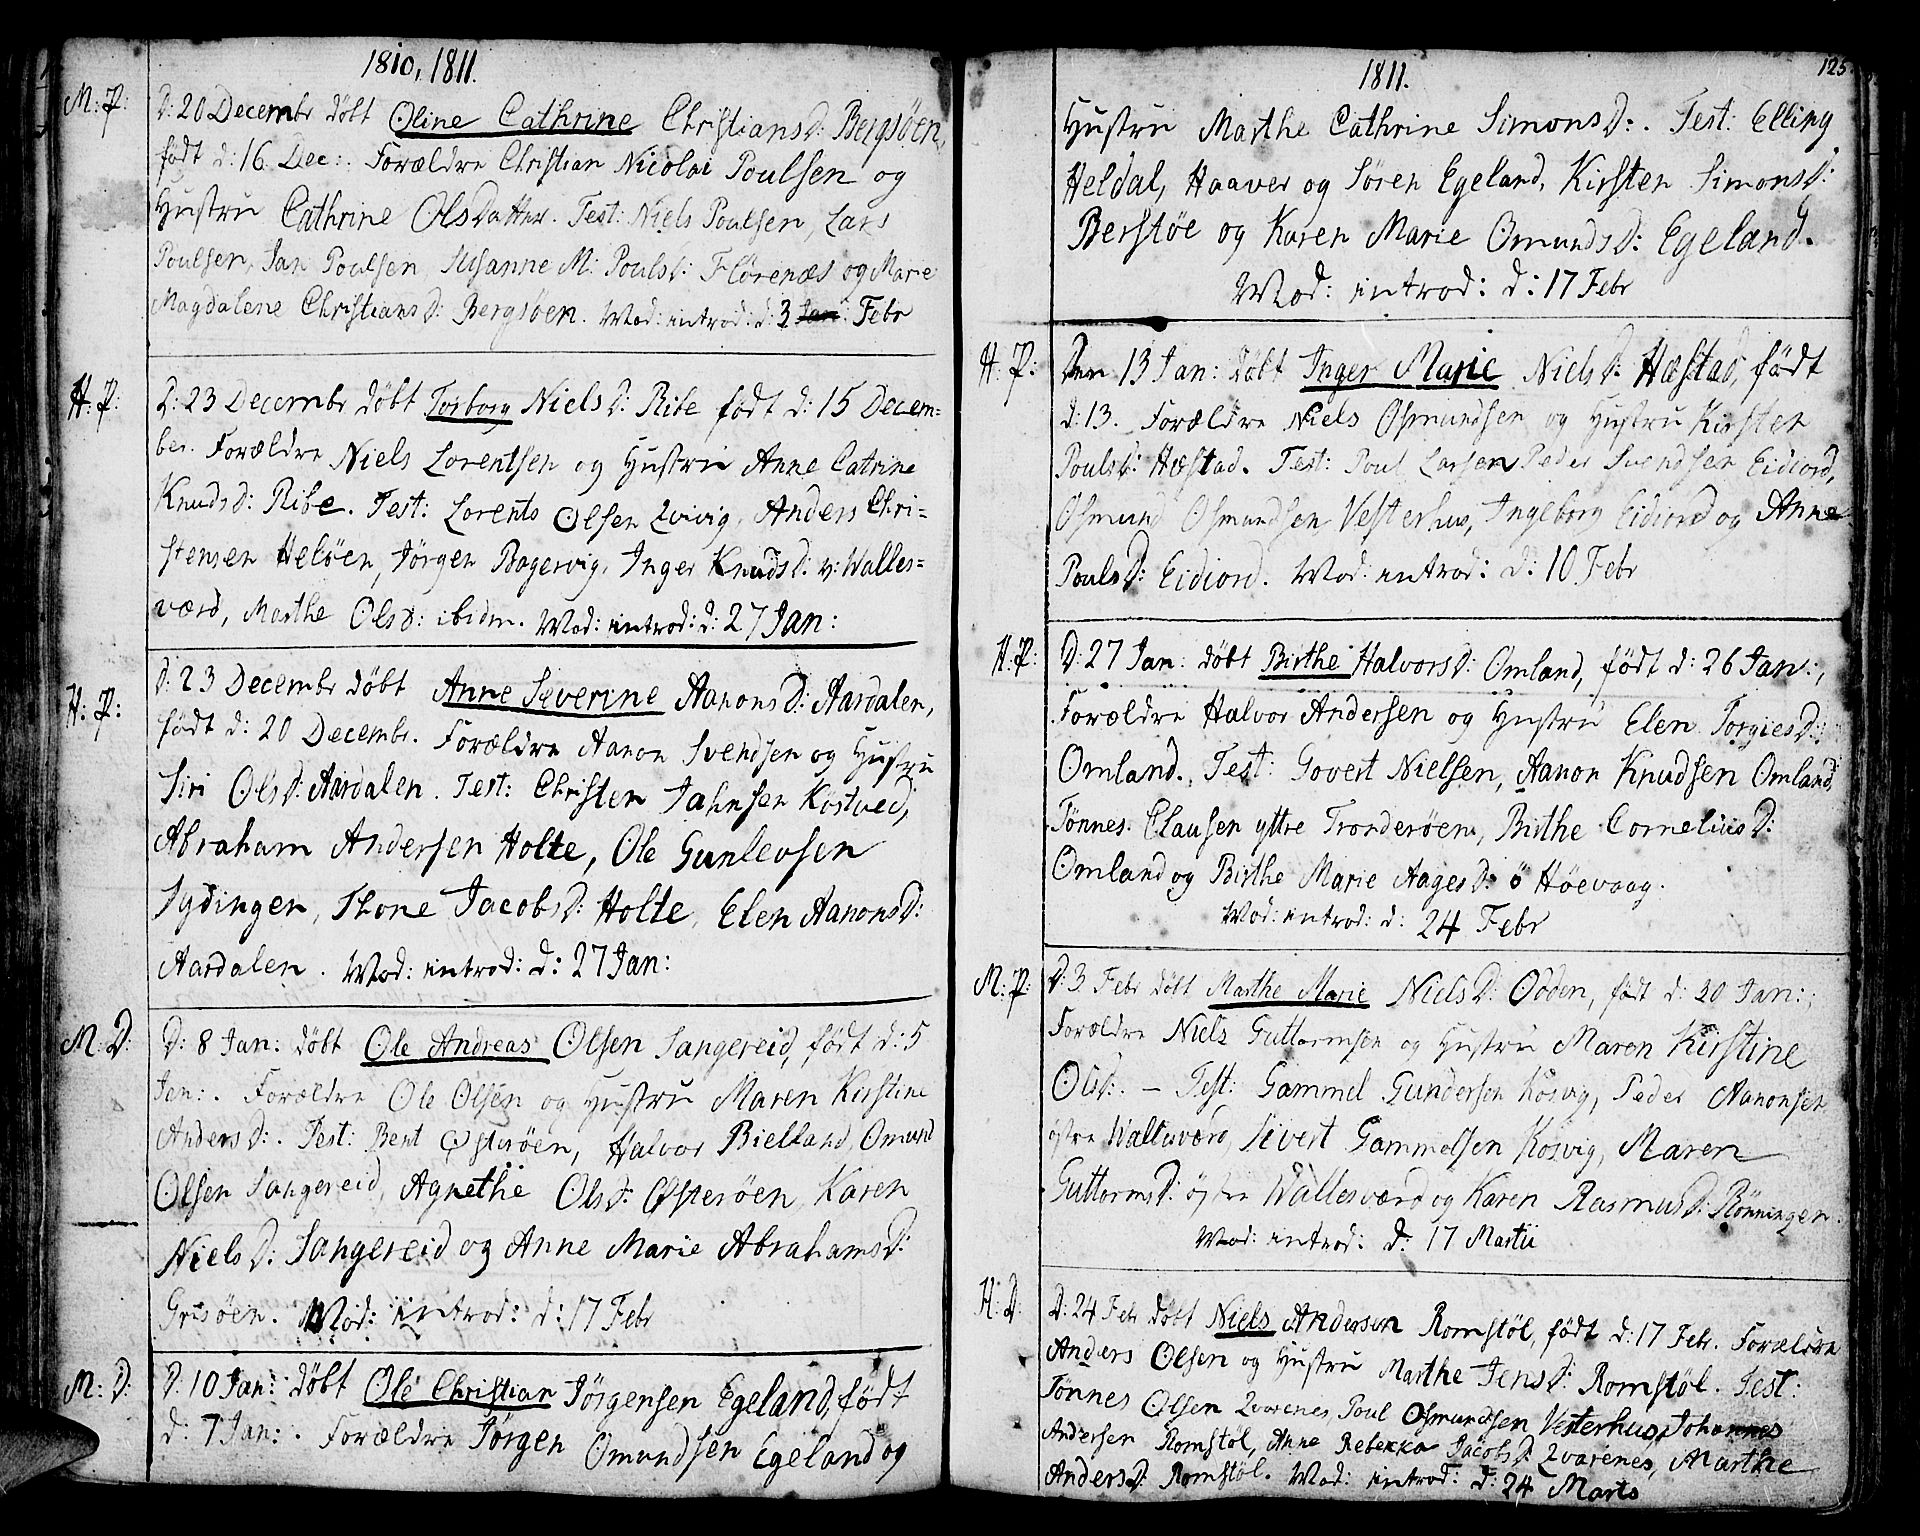 1810, 1811.
M: P:
D: 20 Decembr døbt Oline Cathrine Christians D: Bergsøen,
født d: 16 Dec:. Forældre Christian Nicolai Poulsen og
Hustru Cathrine Olsdatter. Test: Niels Poulsen, Lars
Poulsen, Jan Poulsen, Susanne M: Pouls D: Flørenæs og Marie
Magdalene Christians D: Bergsøen. Mod: introd: d: 3 Jan: Febr
H: P:
D: 23 Decembr døbt Torborg Niels D: Ribe født d: 15 Decem=
ber. Forældre Niels Lorentsen og Hustru Anne Catrine
Knuds D: Ribe. Test: Lorents Olsen Qvivig, Anders Chri=
stensen Heløen, Jørgen Bagervig, Inger Knuds D: v: Walles=
værd, Marthe Ols D: ibidm. Mod: introd: d: 27 Jan:
H: P:
D: 23 Decembr døbt Anne Severine Aanons D: Aardalen,
født d: 20 Decembr. Forældre Aanon Svendsen og Hustru
Siri Ols D: Aardalen. Test: Christen Jahnsen Kostved,
Abraham Andersen Holte, Ole Gunlevsen
Sydingen, Thone Jacobs D: Holte, Elen Aanons D:
Aardalen. Mod: introd: d: 27 Jan:
M: D:
D: 8 Jan: døbt Ole Andreas Olsen Sangereid, født d: 5
Jan:. Forældre Ole Olsen og Hustru Maren Kirstine
Anders D:. Test: Bent Østerøen, Halvor Bielland, Omund
Olsen Sangereid, Agnethe Ols D: Østerøen, Karen
Niels D: Sangereid og Anne Marie Abrahams D:
Grisøen. Mod: introd: d: 17 Febr
M: D:
D: 10 Jan: døbt Ole Christian Jørgensen Egeland, født
d: 7 Jan:. Forældre Jørgen Omundsen Egeland og
1811.
125
Hustru Marthe Cathrine Simons D:. Test: Elling
Heldal, Haaver og Søren Egeland, Kirsten Simons D:
Berstøe og Karen Marie Omunds D: Egeland.
Mod: introd: d: 17 Febr
H: P:
Den 13 Jan: døbt Inger Marie Niels D: Hæstad, født
d: 13. Forældre Niels Osmundsen og Hustru Kirsten
Pouls D: Hæstad. Test: Poul Larsen Peder Svendsen Eidiord,
Osmund Osmundsen Vesterhus, Ingeborg Eidiord og Anne
Pouls D: Eidiord. Mod: introd: d: 10 Febr
H: P:
D: 27 Jan: døbt Birthe Halvors D: Omland, født d: 26 Jan:,
Forældre Halvor Andersen og Hustru Elen Torgies D:
Omland. Test: Govert Nielsen, Aanon Knudsen Omland,
Tønnes Clausen yttre Tronderøen, Birthe Cornelius D:
Omland og Birthe Marie Aages D: ö Høevaag.
Mod: introd: d: 24 Febr
M: P:
D: 3 Febr døbt Marthe Marie Niels D: Odden, født d: 20 Jan:,
Forældre Niels Guttormsen og Hustru Maren Kirstine
Ols D:. – Test: Gammel Gundersen Kosvig, Peder Aanonsen
østre Wallesværd, Sivert Gammelsen Kosvig, Maren
Guttorms D: østre Wallesværd og Karen Rasmus D: Rønningen.
Mod: introd: d: 17 Martii
H: D
D: 24 Febr døbt Niels Andersen Romstøl, født d: 17 Febr. Forældre
Anders Olsen og Hustru Marthe Jens D: Romstøl. Test:
Tønnes Olsen Qvarenes Poul Osmundsen Vesterhus, Johannes
Andersen Romstøl, Anne Rebekka Jacobs D: Qvarenes, Marthe
Anders D: Romstøl. Mod: introd: d: 24 Marts